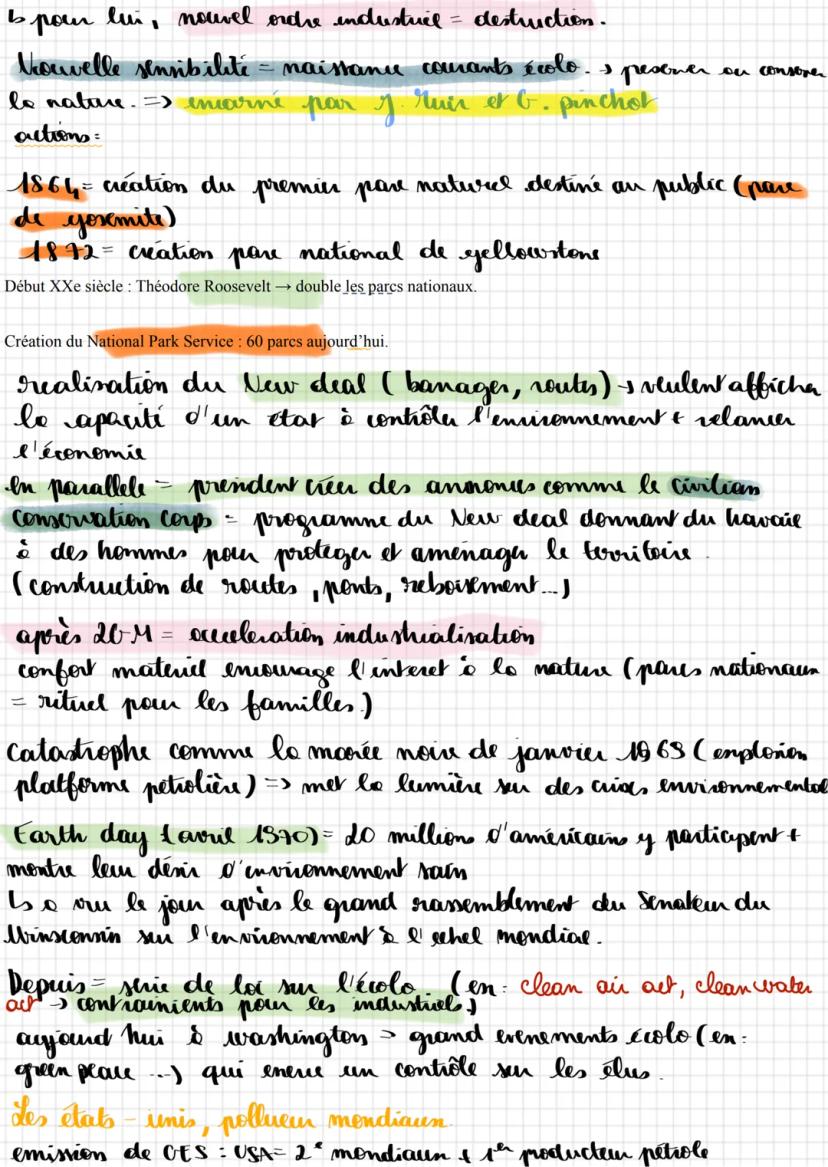 ↳ pour lui, nouvel ordre industriel = destruction.
Nouvelle sensibilité = naissance courants écolo. → preserver ou conserver
la nature. => encarné par J. Muir et G. pinchot
actions:
1864 = création du premier parc naturel destiné au public (parc
de yosemite)
1872 = création parc national de yellowstone
Début XXe siècle : Théodore Roosevelt → double les parcs nationaux.
Création du National Park Service : 60 parcs aujourd'hui.
realisation du New deal (barrages, routes) → veulent afficher
la capacité d'un état à contrôler l'environnement + relancer
l'économie
En parallele = président créer des annonces comme le civilian
conservation corps = programme du New deal donnant du travail
à des hommes pour protéger et aménager le territoire.
(construction de routes, ponts, reboisement...)
après 2G-M = acceleration industrialisation
confort matériel encourage l'interet à la nature (parcs nationaux
= rituel pour les familles.)
Catastrophe comme la marée noire de janvier 1969 (explosion
platforme pétrolière) => met la lumière sur des crises environnemental
Earth day (avril 1970) = 20 millions d'américains y participent +
montre leur désir d'environnement sain
↳ a vu le jour après le grand rassemblement du Senateur du
Winsconsin sur l'environnement à l'echel mondial.
Depuis = série de loi sur l'écolo. (ex: clean air act, clean water
act → contrainients pour les industriels)
aujourd hui à washington = grand evenements écolo (ex:
green peace ...) qui exerce un contrôle sur les élus.
Les états-unis, pollueur mondiaux.
emission de GES : USA= 2e mondiaux + 1er producteur pétrole